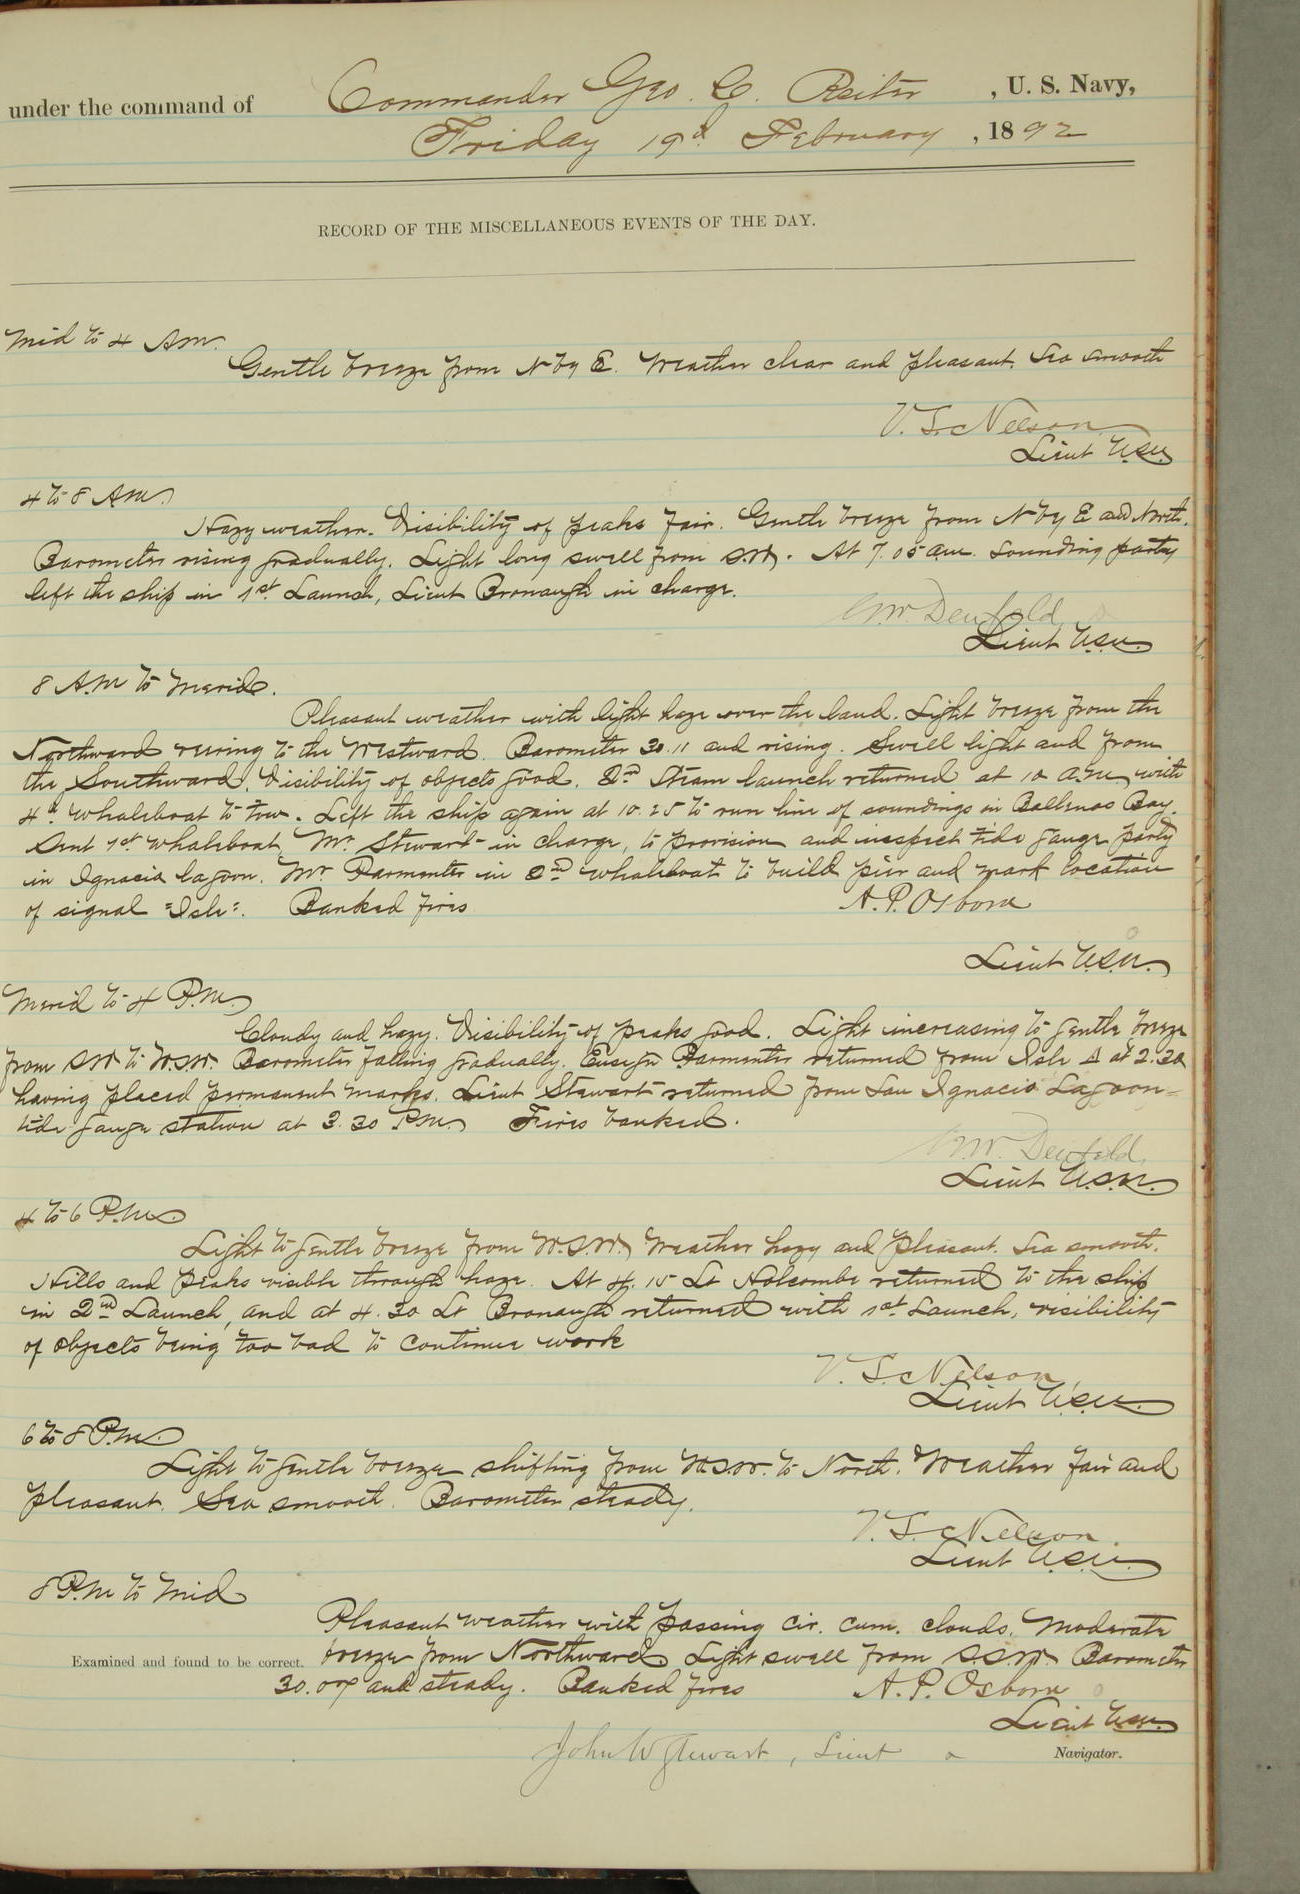 under the command of Commander Geo. C. Reiter, U. S. Navy,
Friday 19th February, 1892
RECORD OF THE MISCELLANEOUS EVENTS OF THE DAY.
Mid to 4 A.M.
Gentle breeze from N by E. Weather clear and pleasant. Sea smooth
V. S. Nelson
Lieut U.S.N.
4 to 8 A.M.
Hazy weather. Visibility of peaks fair. Gentle breeze from N by E and North.
Barometer rising gradually. Light long swell from S.W. At 7.05 a.m. sounding party
left the ship in 1st Launch, Lieut Bronaugh in charge.
W. Denfeld
Lieut U.S.N.
8 A.M to Merid.
Pleasant weather with light haze over the land. Light breeze from the
Northward veering to the Westward. Barometer 30.11 and rising. Swell light and from
the Southward. Visibility of objects good. 2nd Steam launch returned at 10 a.m. with
4th Whaleboat in tow. Left the ship again at 10.25 to run line of soundings in Ballenas Bay.
Sent 1st Whaleboat, Mr. Stewart in charge, to provision and inspect tide gauge party
in Ignacio lagoon. Mr Parmenter in 2nd Whaleboat to build pier and mark location
of signal "Isle". Banked fires
A. P. Osborn
Lieut U.S.N.
Merid to 4 P.M.
Cloudy and hazy. Visibility of peaks good. Light increasing to gentle breeze
from SW to W.S.W. Barometer falling gradually. Ensign Parmenter returned from Isle △ at 2.30
having placed permanent marks. Lieut Stewart returned from San Ignacio Lagoon
tide gauge station at 3.30 P.M. Fires banked.
W. Denfeld
Lieut U.S.N.
4 to 6 P.M.
Light to gentle breeze from W.S.W. Weather hazy and pleasant. Sea smooth.
Hills and peaks visible through haze. At 4.15 Lt Holcombe returned to the ship
in 2nd Launch, and at 4.30 Lt. Bronaugh returned with 1st Launch, visibility
of objects being too bad to continue work
V. S. Nelson
Lieut U.S.N.
6 to 8 P.M.
Light to gentle breeze shifting from W.S.W. to North. Weather fair and
pleasant. Sea smooth. Barometer steady.
V. S. Nelson
Lieut U.S.N.
8 P.M to Mid
Pleasant weather with passing cir. cum. clouds. Moderate
breeze from Northward. Light swell from S.S.W. Barometer
Examined and found to be correct.
30.07 and steady. Banked fires
A. P. Osborn
Lieut U.S.N.
John W Stewart, Lieut Navigator.